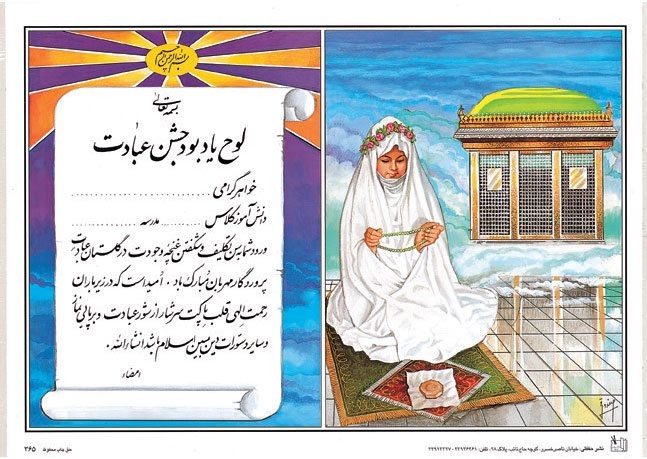 بسم الله الرحمن الرحیم
بسمه تعالی
لوح یادبود جشن عبادت
خواهر گرامی ..............................
دانش آموز کلاس .............. مدرسه ..............
ورود شما به سن تکلیف و شکفتن غنچه وجودت در گلستان عبادت
پروردگار مهربان مبارک باد . امید است که در زیر باران
رحمت الهی قلب پاکت سرشار از شور عبادت و برپایی نماز
و سایر دستورات دین مبین اسلام باشد انشاءالله .
امضاء
نشر حافظی: خیابان ناصرخسرو، کوچه حاج نایب، پلاک ۲۸، تلفن:
حق چاپ محفوظ
۳۶۵